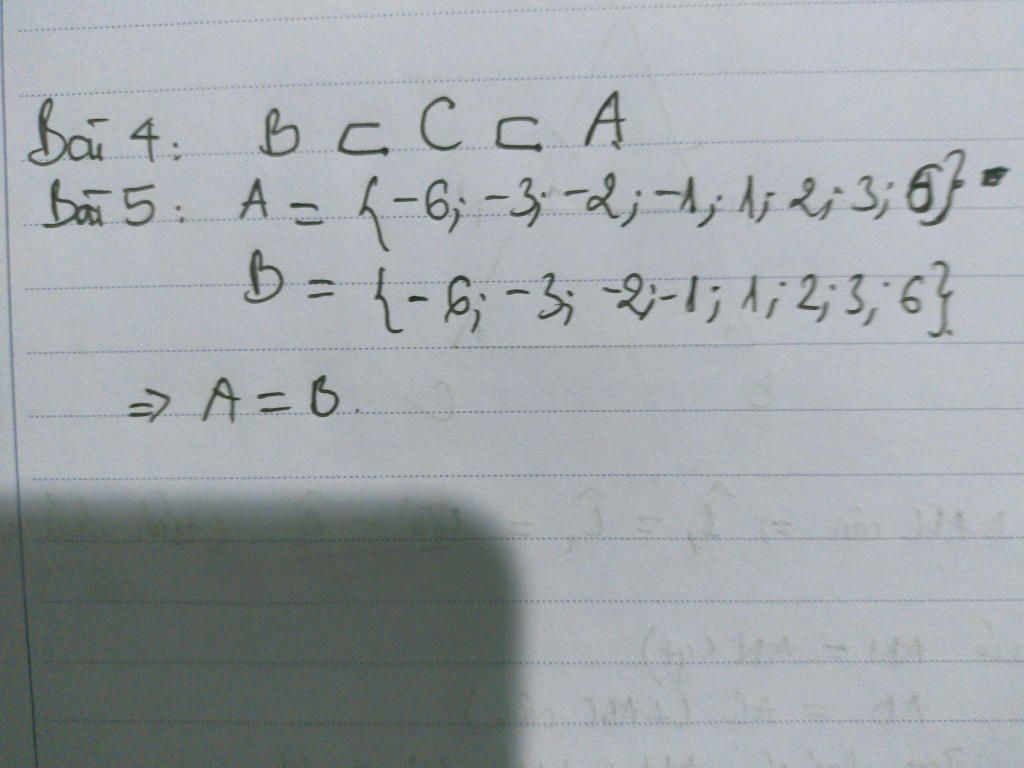 Bài 4: B ⊂ C ⊂ A
Bài 5: A = {-6; -3; -2; -1; 1; 2; 3; 6}
B = {-6; -3; -2; -1; 1; 2; 3; 6}.
⇒ A = B.